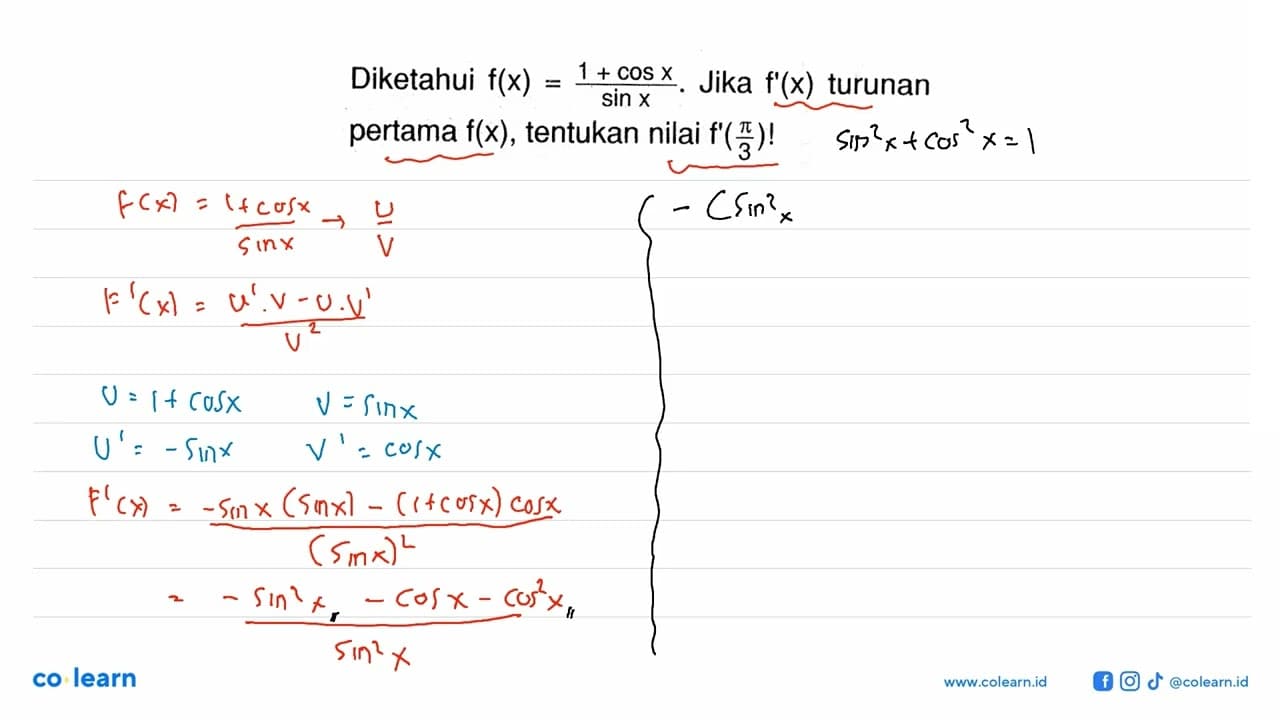 Diketahui f(x) = (1 + cos x)/(sin x). Jika f'(x) turunan
pertama f(x), tentukan nilai f'(π/3)!
sin²x + cos²x = 1
F(x) = (1 + cosx)/(sinx) → U/V
F'(x) = (U'.V - U.V')/(V²)
U = 1 + cosx V = sinx
U' = -sinx V' = cosx
F'(x) = (-sinx (sinx) - (1+cosx) cosx)/((sinx)²)
= (-sin²x - cosx - cos²x)/(sin²x)
- (sin²x
co learn
www.colearn.id
@colearn.id